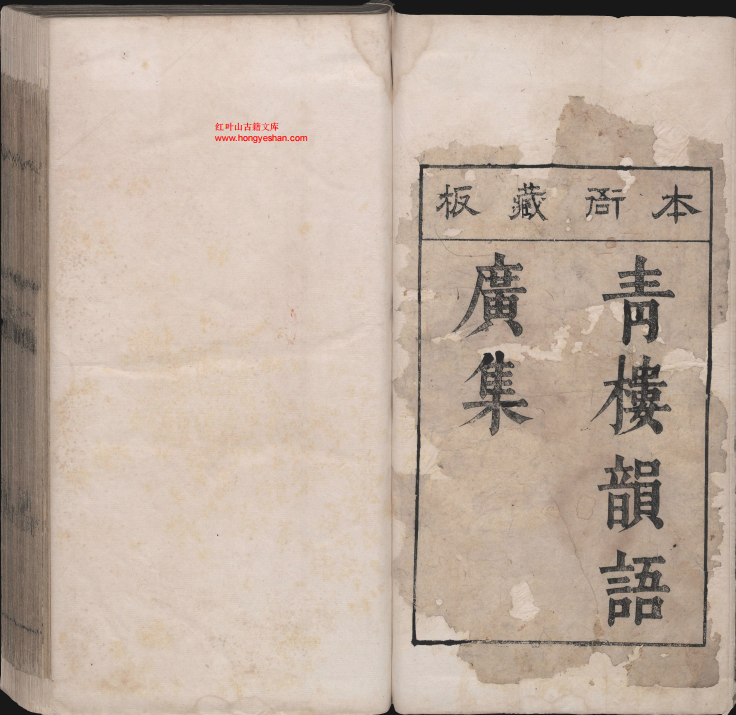 红叶山古籍文库
www.hongyeshan.com
本衙藏板
青樓韻語
廣集